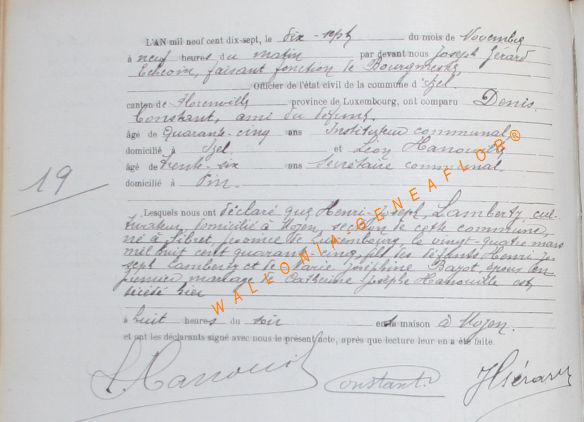 L'AN mil neuf cent dix-sept, le dix-sept du mois de Novembre
à neuf heures du matin par devant nous Joseph Gérard
Echevin, faisant fonction de Bourgmestre
Officier de l'état civil de la commune d'Izel.
canton de Florenville province de Luxembourg, ont comparu Denis
Constant, ami du défunt
âgé de Quarante-cinq ans Instituteur communal
domicilié à Izel. et Léon Hanouille
âgé de trente-six ans Secrétaire communal
domicilié à Pin.
19
Lesquels nous ont déclaré que Henri-Joseph, Lamberty cul-
tivateur, domicilié à Moyen, section de cette commune,
né à Sibret province de Luxembourg, le vingt-quatre mars
mil huit cent quarante-cinq, fils des défunts Henri Jo-
seph Lamberty et de Marie Joséphine Bayot, époux en
premier mariage de Catherine Josephe Hanouille est
décédé hier
à huit heures du soir en sa maison à Moyen.
et ont les déclarants signé avec nous le présent acte, après que lecture leur en a été faite.
L Hanouille Constant. J Gérard
WALLONIA-GENEAFLOR®